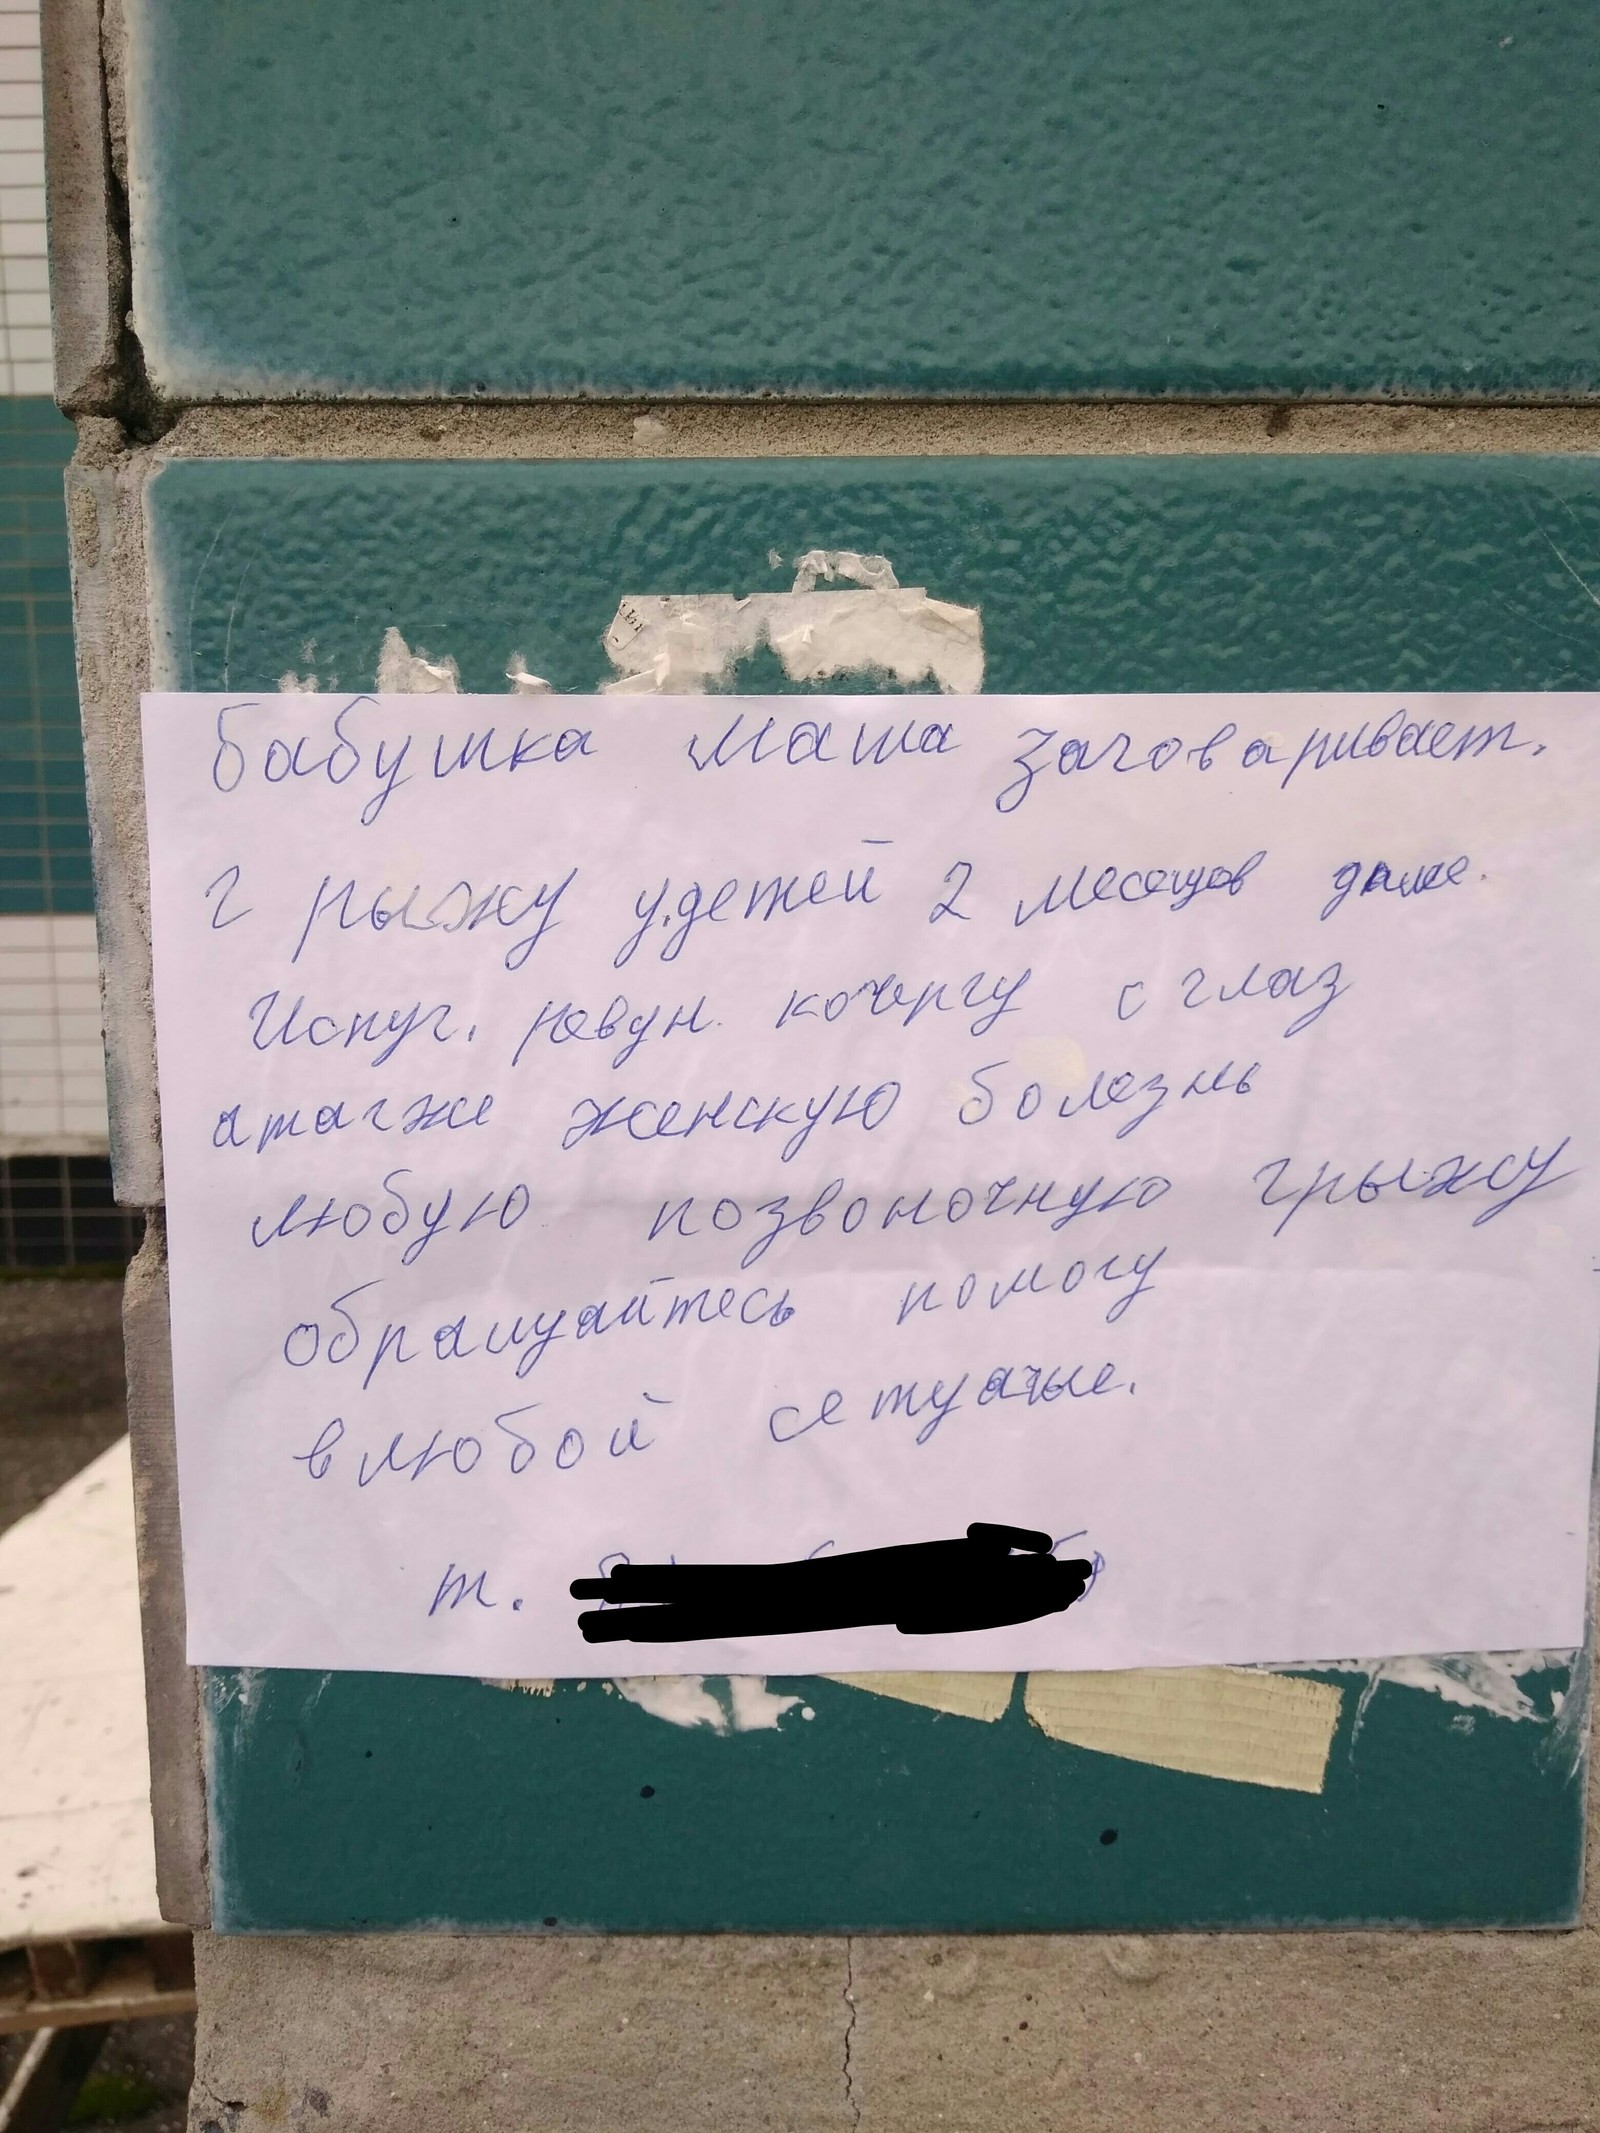 бабушка маша заговаривает.
г рыжу у.детей 2 месецов
Испуг. ревун. кочергу с глаз
атагже женскую болезнь
любую позвоночную грыжу
обращуайтесь помогу
влюбой сетуачые.
т.